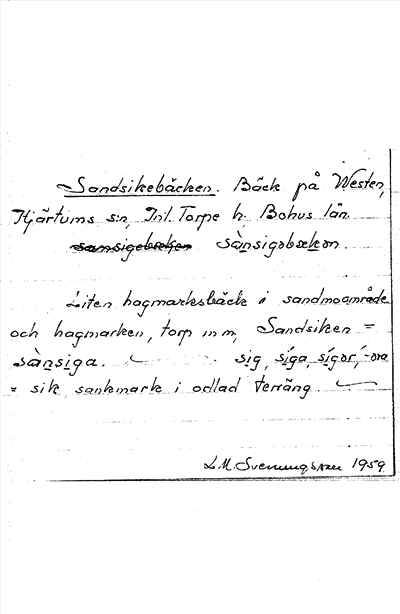 Sandsikebäcken. Bäck på Westen,
Hjärtums s:n, Inl. Torpe h. Bohus län.
sànsigobsekon.
Liten hagmarksbäck i sandmoområde
och hagmarken, torp m m, Sandsiken =
sànsiga. sig, síga, sígor, -ora
= sik, sankmark i odlad terräng.
L.M. Svenungsson 1959.